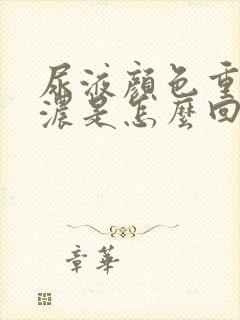 尿液顏色重
濃是怎麼回
章華